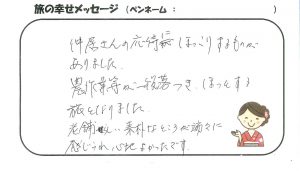 旅の幸せメッセージ（ペンネーム：　　　　　）
仲居さんの応待にほっこりするものが
ありました。
農作業等が一段落つき、ほっとする
旅となりました。
老舗らしい素朴なところが端々に
感じられ心地よかったです。